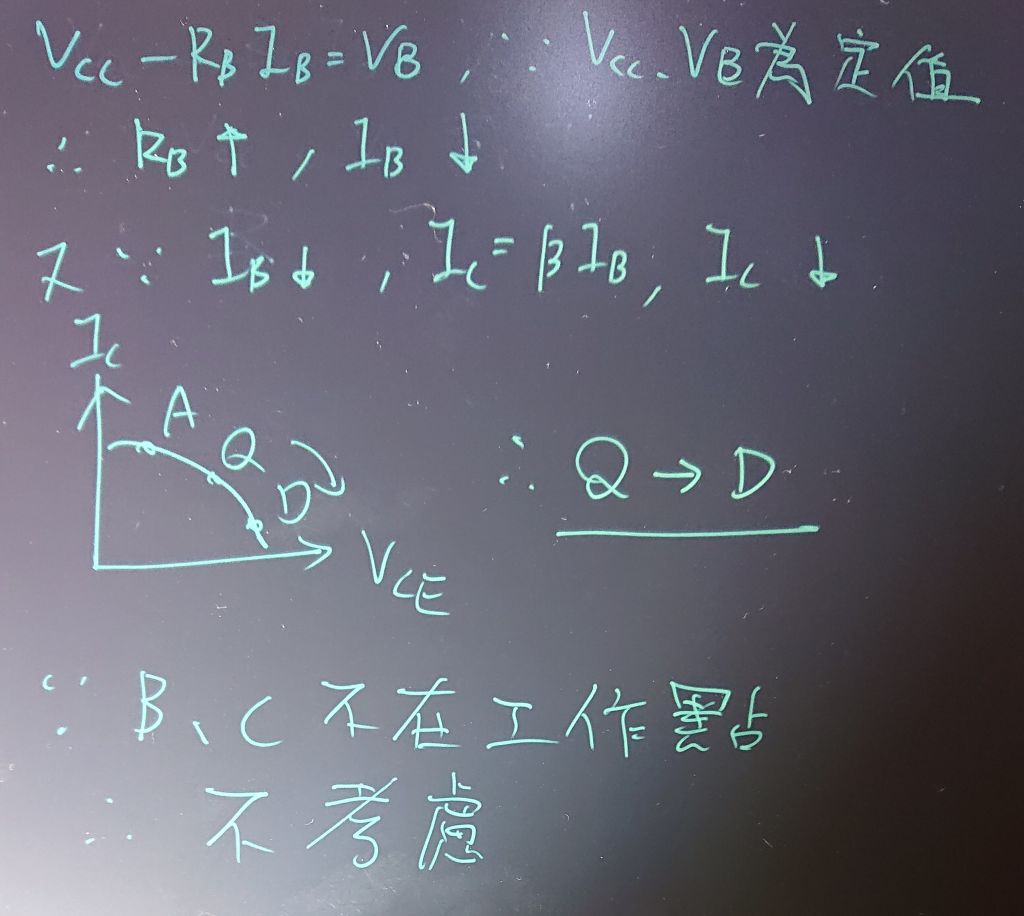 V_CC - R_B I_B = V_B , ∵ V_CC、V_B為定值
∴ R_B ↑ , I_B ↓
又 ∵ I_B ↓ , I_C = β I_B , I_C ↓
I_C
A
Q
D
V_CE
∴ Q → D
∵ B、C 不在工作點
∴ 不考慮